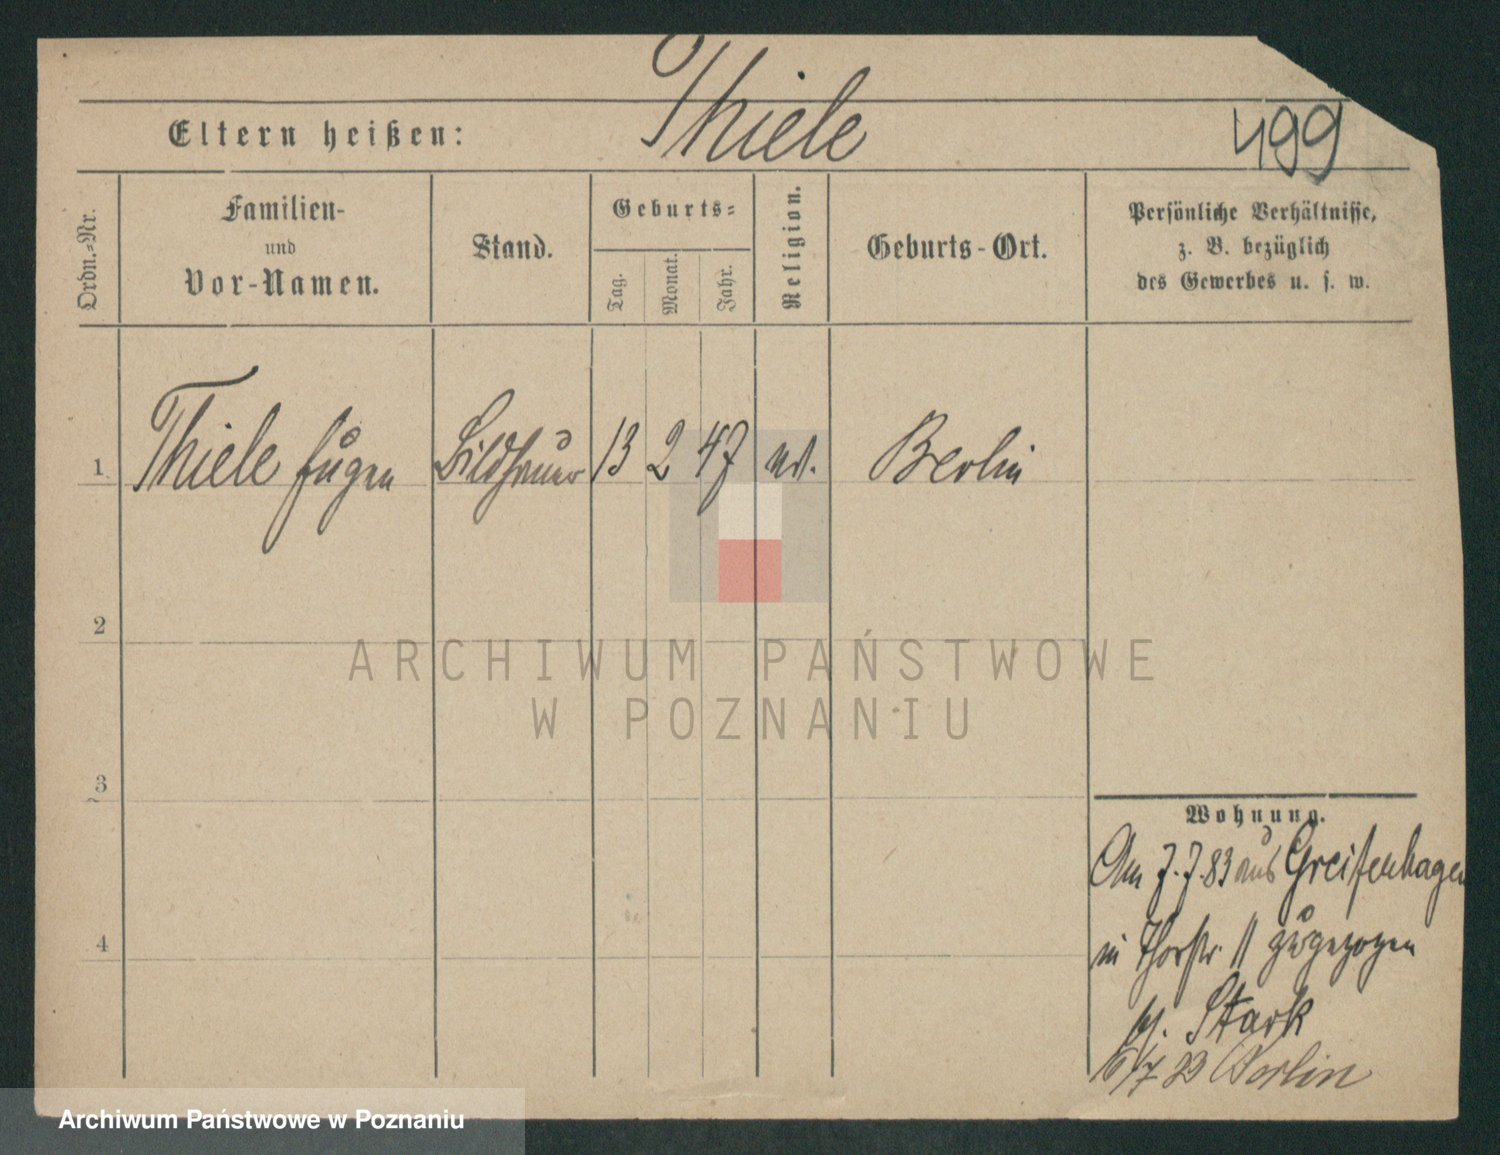 Thiele
499
Eltern heißen:
Ordn.-Nr.
Familien-
und
Vor-Namen.
Stand.
Geburts-
Tag.
Monat.
Jahr.
Religion.
Geburts-Ort.
Persönliche Verhältnisse,
z. B. bezüglich
des Gewerbes u. s. w.
1 Thiele Eugen Bildhauer 13 2 47 ev. Berlin
2
ARCHIWUM PAŃSTWOWE
W POZNANIU
3
4
Wohnung.
Am 7.7.83 aus Greifenhagen
in Thorstr. 11 zugezogen
bei Stark
16/7 83 Berlin
Archiwum Państwowe w Poznaniu